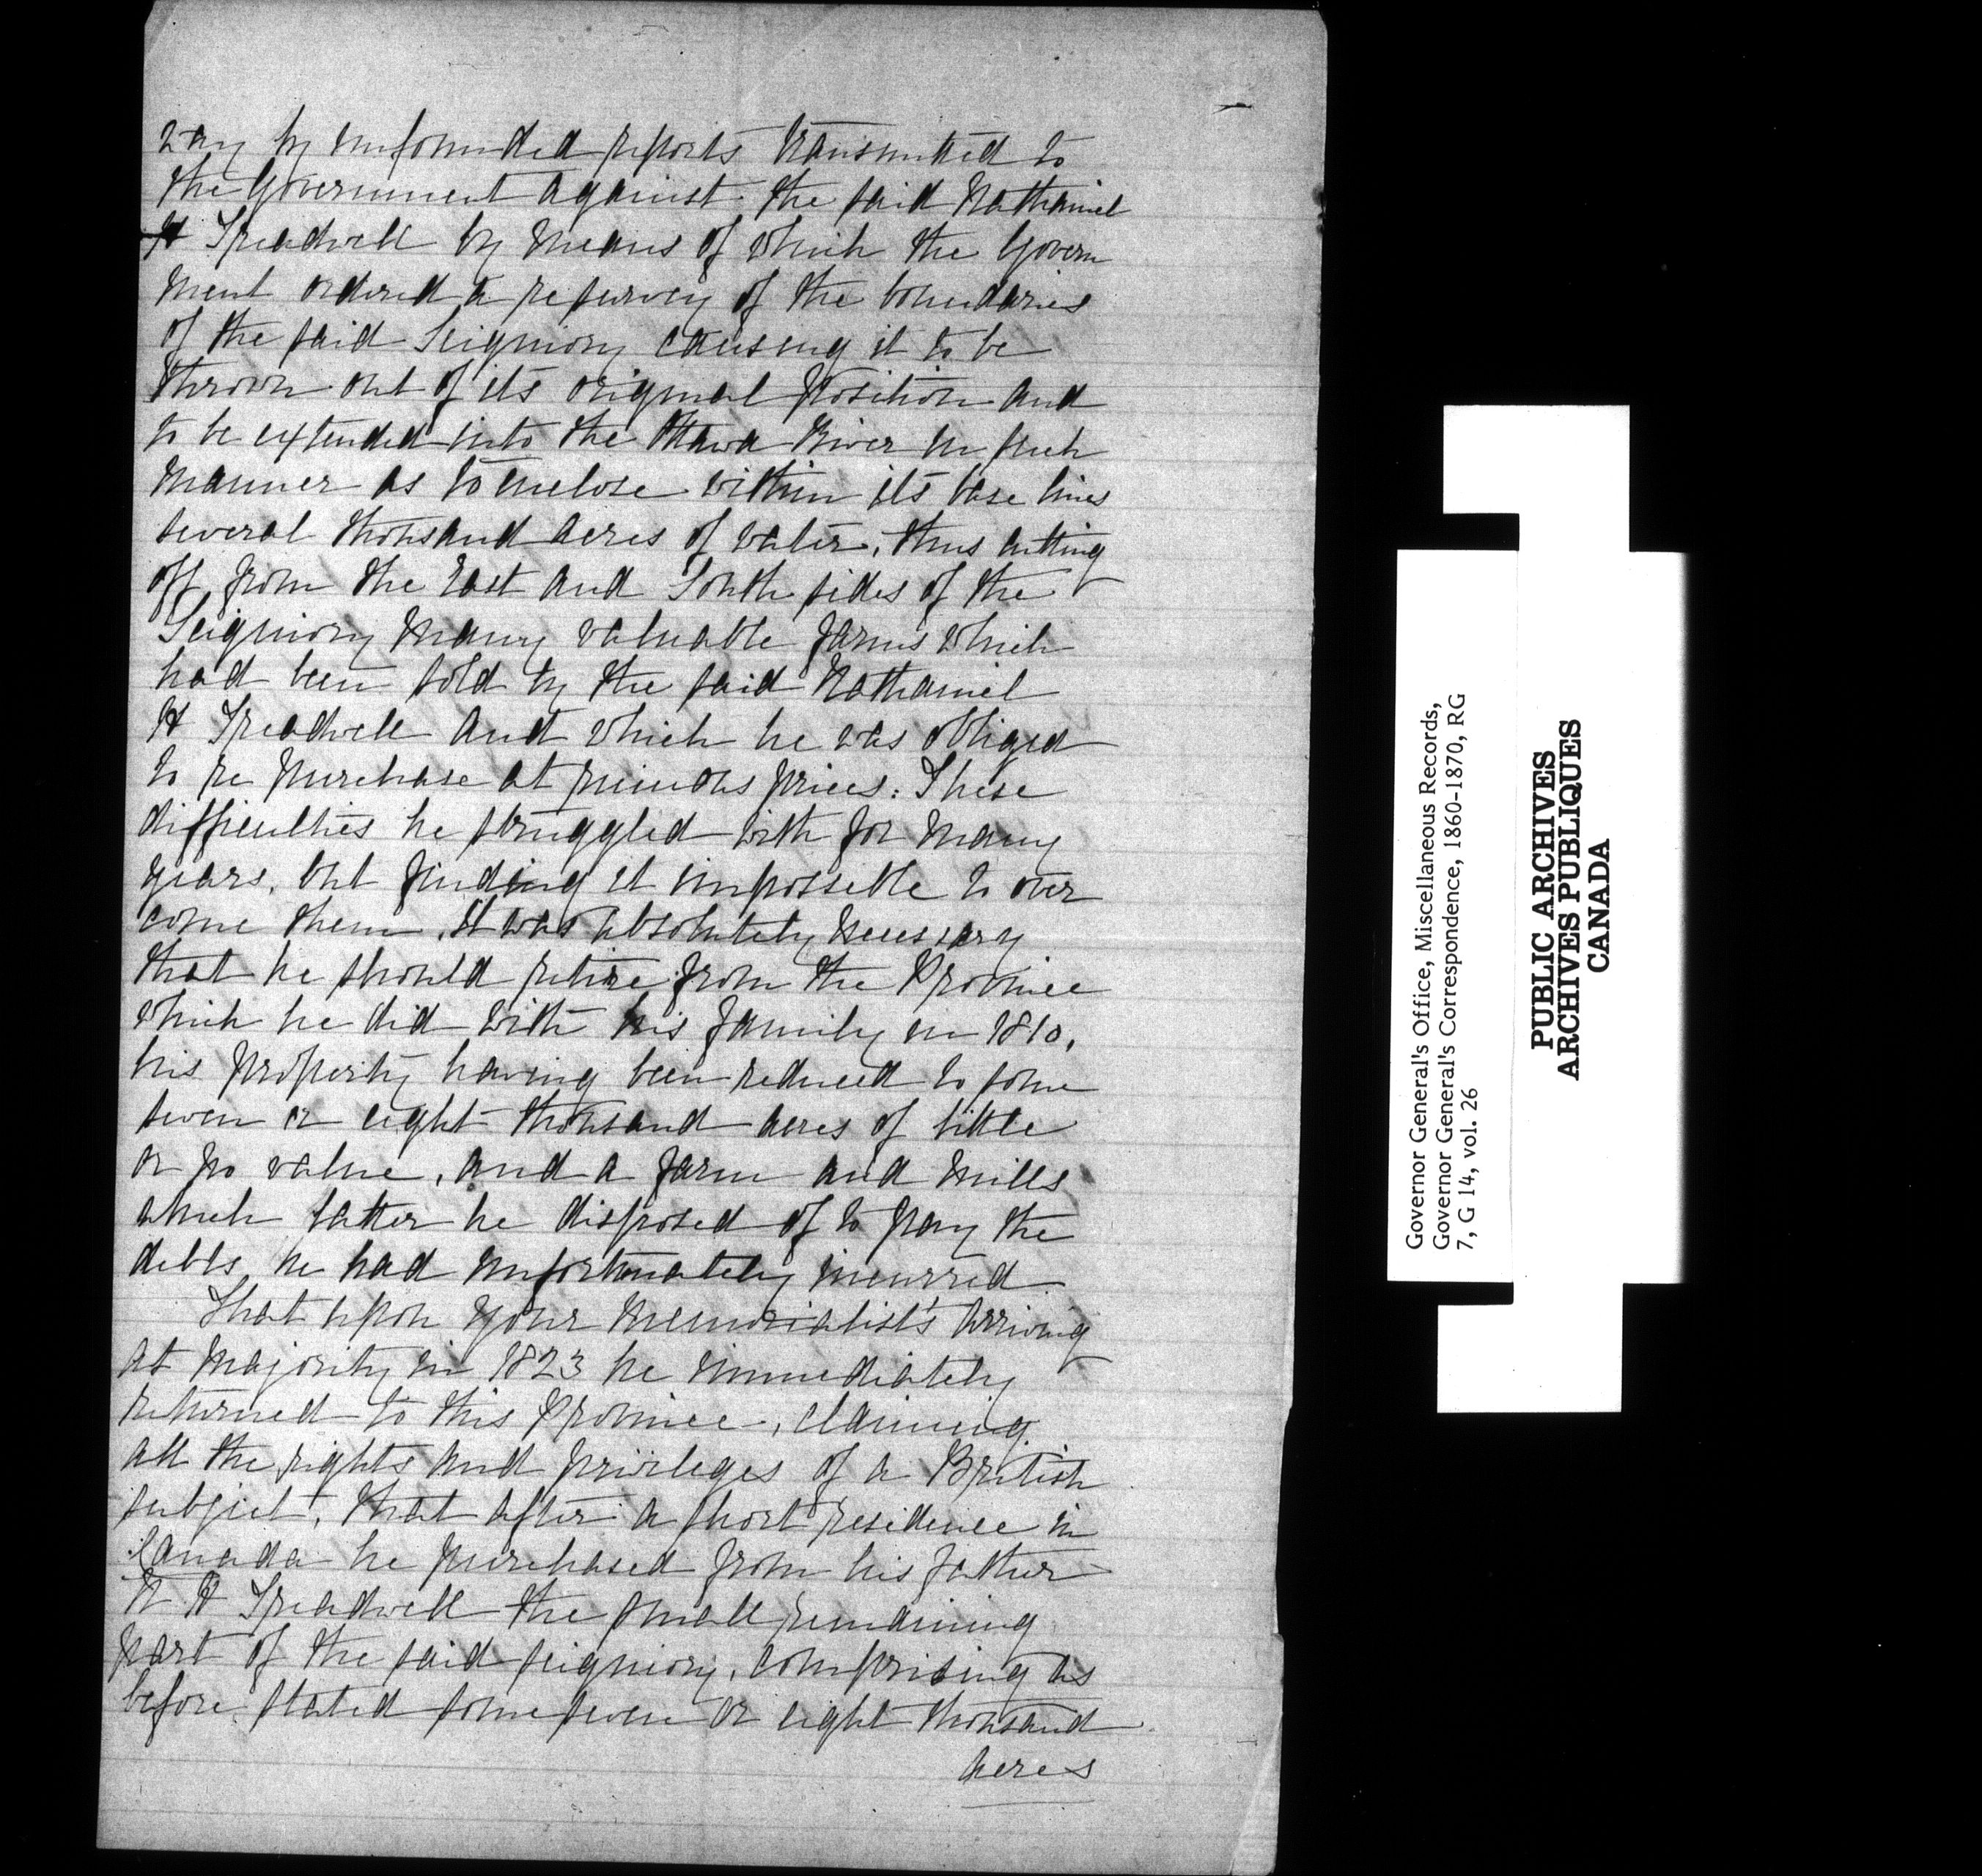 way by unfounded reports transmitted to
the Government against the said Nathaniel
H Treadwell by means of which the Govern
ment ordered a resurvey of the boundaries
of the said Seigniory causing it to be
thrown out of its original position and
to be extended into the Ottawa River in such
manner as to enclose within its base lines
several thousand acres of water, thus cutting
off from the East and South sides of the
Seigniory many valuable farms which
had been sold by the said Nathaniel
H Treadwell and which he was obliged
to re purchase at ruinous prices: These
difficulties he struggled with for many
years, but finding it impossible to over
come them, it was absolutely necessary
that he should retire from the Province
which he did with his family in 1810,
his property having been reduced to some
seven or eight thousand acres of little
or no value, and a farm and mills
which latter he disposed of to pay the
debts he had unfortunately incurred
That upon your memorialist's arriving
at majority in 1823 he immediately
returned to this Province, claiming
all the rights and privileges of a British
subject, that after a short residence in
Canada he purchased from his father
N H Treadwell the small remaining
part of the said seigniory, comprising as
before stated some seven or eight thousand
acres
Governor General's Office, Miscellaneous Records,
Governor General's Correspondence, 1860-1870, RG
7, G 14, vol. 26
PUBLIC ARCHIVES
ARCHIVES PUBLIQUES
CANADA